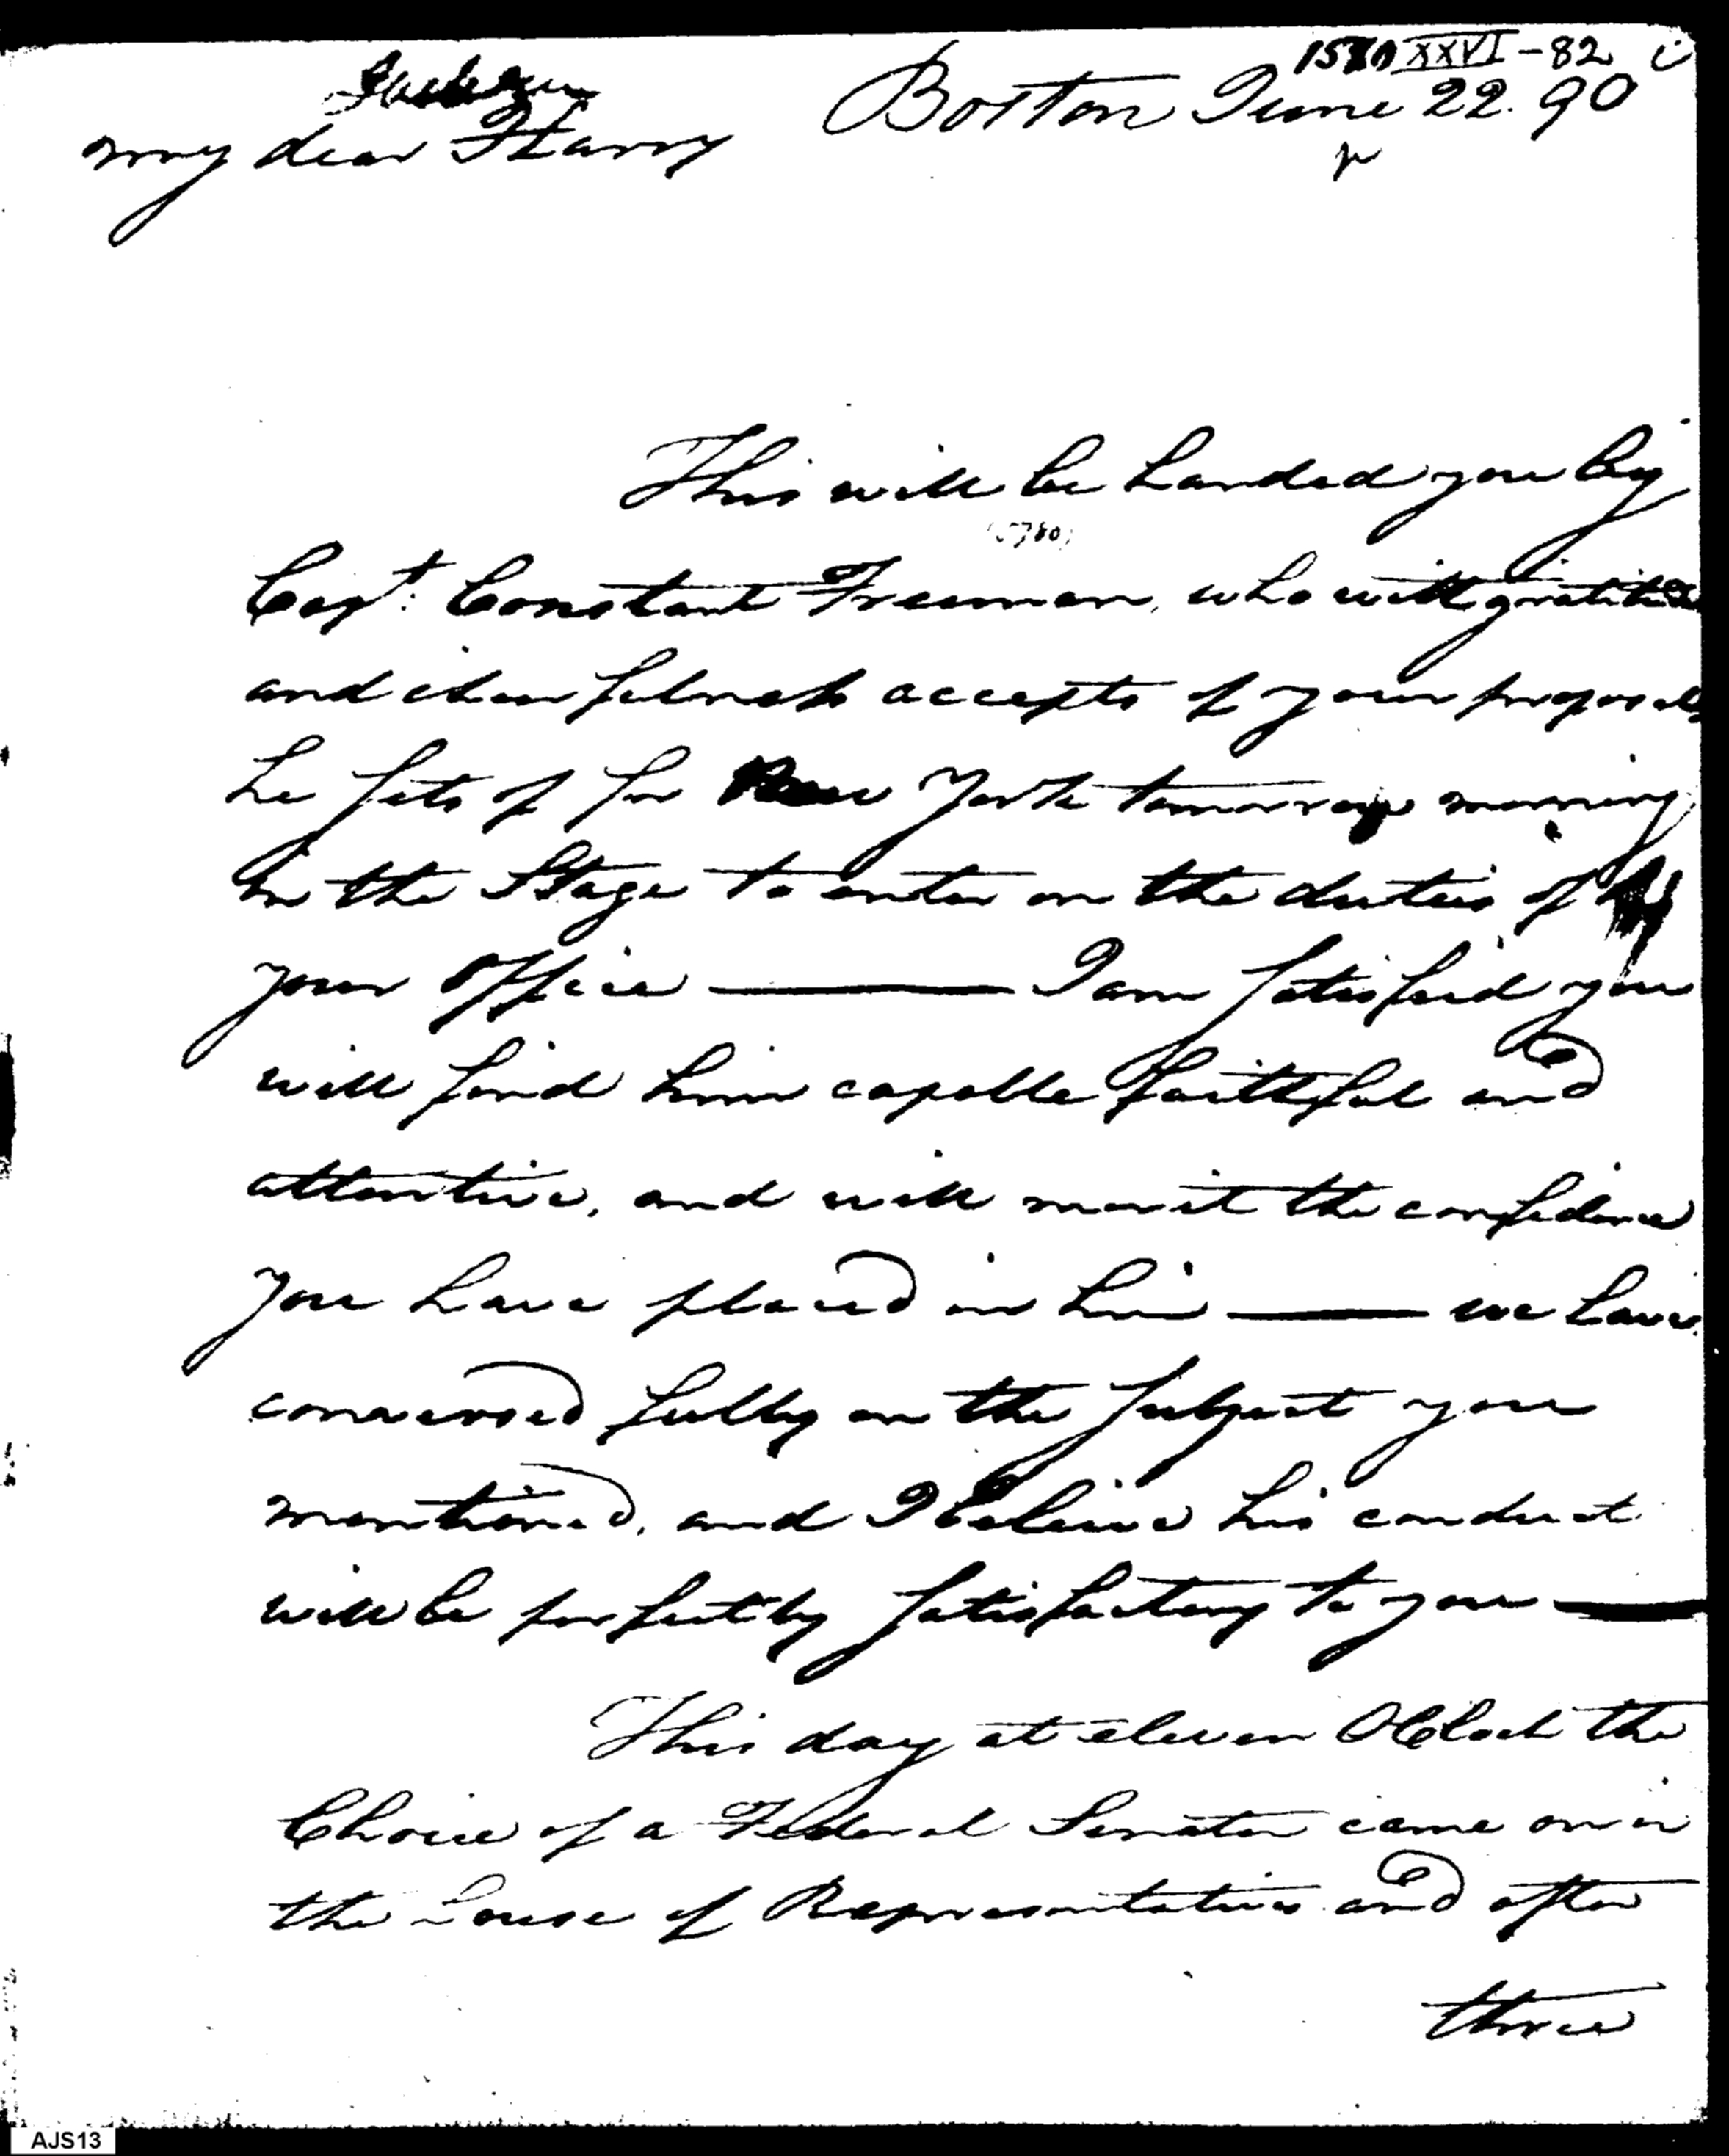 XXVI-82
Jackson
Boston June 22. 90
my dear Harry
This will be handed you by
Capt. Constant Freeman, who with gratitude
and chearfulness accepts of your proposals
he sets of for New York tomorrow morning
in the Stage to enter on the duties of
your Office — I am satisfied you
will find him capable faithful and
attentive, and will merit the confidence
you have placed in him — we have
conversed fully on the subject you
mentioned, and I beleive his conduct
will be perfectly satisfactory to you —
This day at eleven OClock the
Choice of a Federal Senator came on in
the House of Representatives and after
three
AJS13